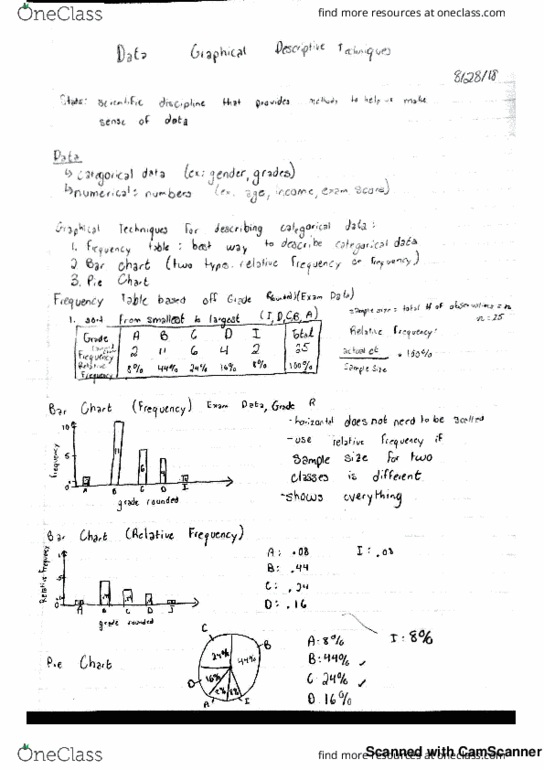 OneClass
find more resources at oneclass.com
Data Graphical Descriptive Techniques
8/28/18
Stats: scientific discipline that provides methods to help us make
sense of data
Data
↳ categorical data (ex: gender, grades)
↳ numerical: numbers (ex. age, income, exam score)
Graphical Techniques for describing categorical data:
1. Frequency table: best way to describe categorical data
2. Bar chart (two type. relative frequency or frequency)
3. Pie Chart
Frequency Table based off Grade Rounded (Exam Data)
1. sort from smallest to largest (I, D, C, B, A)
sample size = total # of observations = n
n = 25
Grade A B C D I Total
Frequency 2 11 6 4 2 25
Relative Frequency 8% 44% 24% 16% 8% 100%
Relative Frequency:
actual ct
Sample Size
· 100%
Bar Chart (Frequency) Exam Data, Grade R
10
5
0
frequency
11
6
4
A B C D I
grade rounded
- horizontal does not need to be scaled
- use relative frequency if
sample size for two
classes is different
- shows everything
Bar Chart (Relative Frequency)
Relative Frequency
A B C D I
grade rounded
A: .08 I: .08
B: .44
C: .24
D: .16
Pie Chart
C
24%
B
44%
D
16%
A
8%
8%
I
A: 8%
B: 44% ✓
C: 24% ✓
D: 16%
I: 8%
Scanned with CamScanner
OneClass
find more resources at oneclass.com